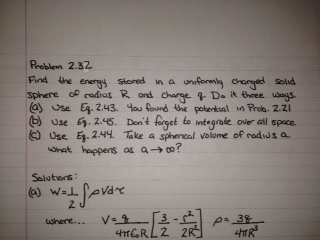 Problem 2.32
Find the energy stored in a uniformly charged solid
sphere of radius R and charge q. Do it three ways.
(a) Use Eq. 2.43. You found the potential in Prob. 2.21
(b) Use Eq. 2.45. Don't forget to integrate over all space
(c) Use Eq. 2.44. Take a spherical volume of radius a.
What happens as a → ∞?
Solutions:
(a) W = 1/2 ∫ ρVdτ
where... V = q/4πε₀R [3/2 - r²/2R²] ρ = 3q/4πR³